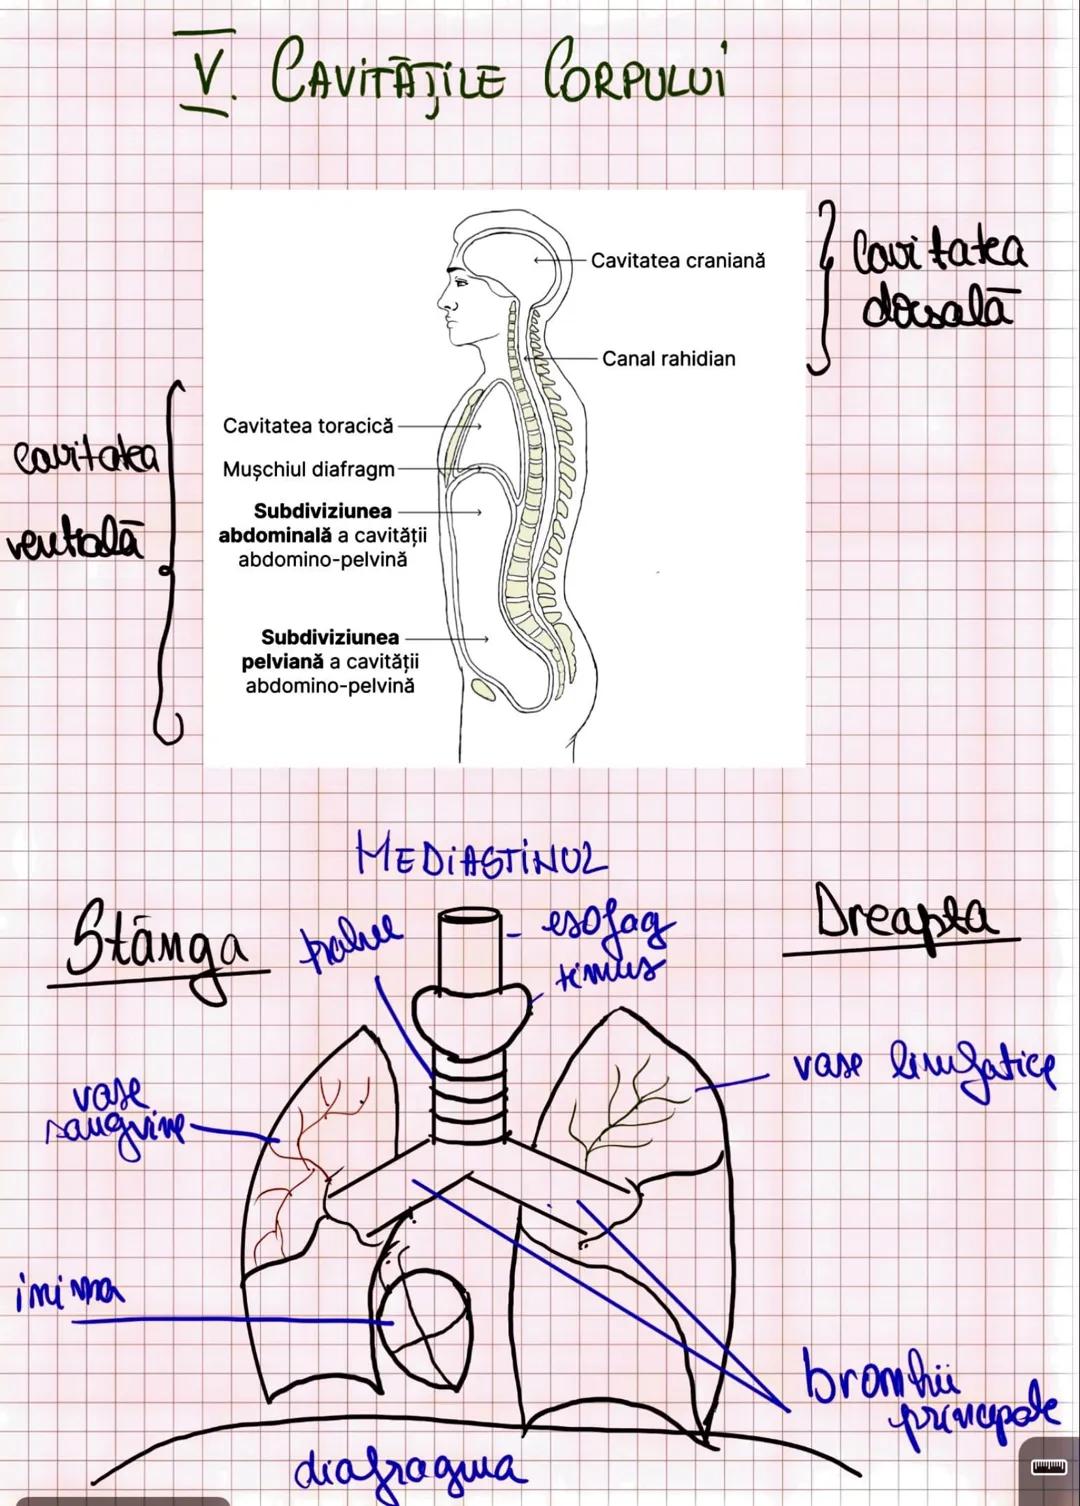 V. CAVITĂȚILE CORPULUI
Cavitatea craniană
Canal rahidian
Cavitatea
dorsală
Cavitatea toracică
Mușchiul diafragm
Subdiviziunea
abdominală a cavității
abdomino-pelvină
Subdiviziunea
pelviană a cavității
abdomino-pelvină
cavitatea
ventrală
MEDIASTINUL
Stânga
Dreapta
esofag
timus
vase
sangvine
vase limfatice
inima
bronhii
principale
diafragma